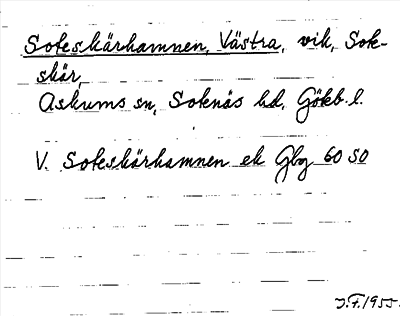 Soteskärhamnen, Västra, vik, Sote-
skär,
Askums sn, Sotenäs hd, Göteb. l.
V. Soteskärhamnen ek Gbg 60 SO
J.F. 1955.